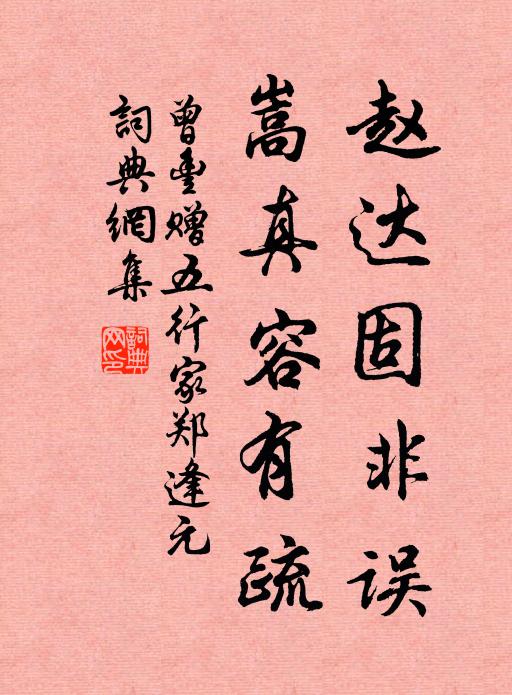 赵达固非误
嵩真容有疏
曾豊赠五行家郑逢元
詞典網集
詞典网印